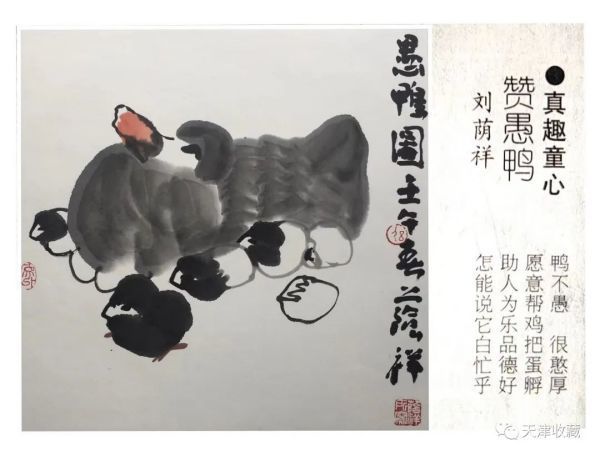 ●真趣童心
赞愚鸭
刘荫祥
鸭不愚 很憨厚
愿意帮鸡把蛋孵
助人为乐品德好
怎能说它白忙乎
愚鴨圖 壬午春 蔭祥
天津收藏